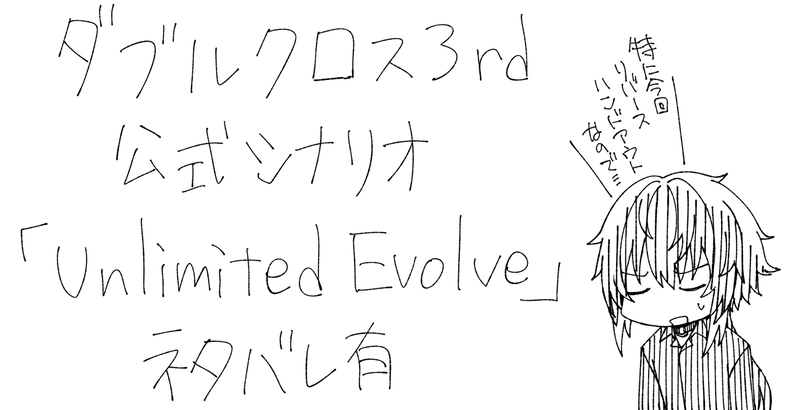 ダブルクロス3rd
公式シナリオ
「Unlimited Evolve」
ネタバレ有
特に今回
リバース
ハンドアウト
なので…